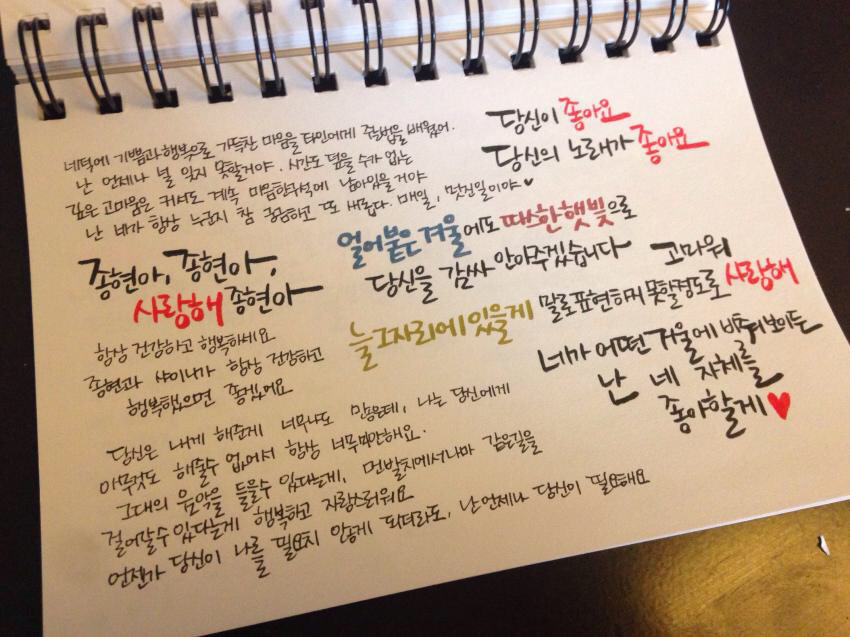 네덕에 기쁨과 행복으로 가득찬 마음을 타인에게 주는법을 배웠어.
난 언제나 널 잊지 못할거야. 시간도 덮을 수가 없는
깊은 고마움은 커서도 계속 마음한구석에 남아있을거야
난 네가 항상 누군지 참 궁금하고 또 새롭다. 매일, 멋진일이야♥
당신이 좋아요
당신의 노래가 좋아요
종현아, 종현아,
사랑해 종현아
얼어붙은 겨울에도 따스한 햇빛으로
당신을 감싸 안아주겠습니다
고마워
말로표현하지 못할정도로 사랑해
늘 그자리에 있을게
항상 건강하고 행복하세요
종현과 샤이니가 항상 건강하고
행복했으면 좋겠어요
네가 어떤 거울에 비춰보이든
난 네 자체를
좋아할게♥
당신은 내게 해준게 너무나도 많은데, 나는 당신에게
아무것도 해줄수 없어서 항상 너무미안해요.
그대의 음악을 들을수 있다는게, 먼발치에서나마 같은길을
걸어갈수있다는게 행복하고 자랑스러워요
언젠가 당신이 나를 필요치 않게 되더라도, 난 언제나 당신이 필요해요